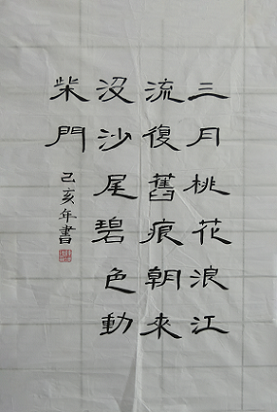 三月桃花浪江
流復舊痕朝来
没沙尾碧色動
柴門
己亥年書